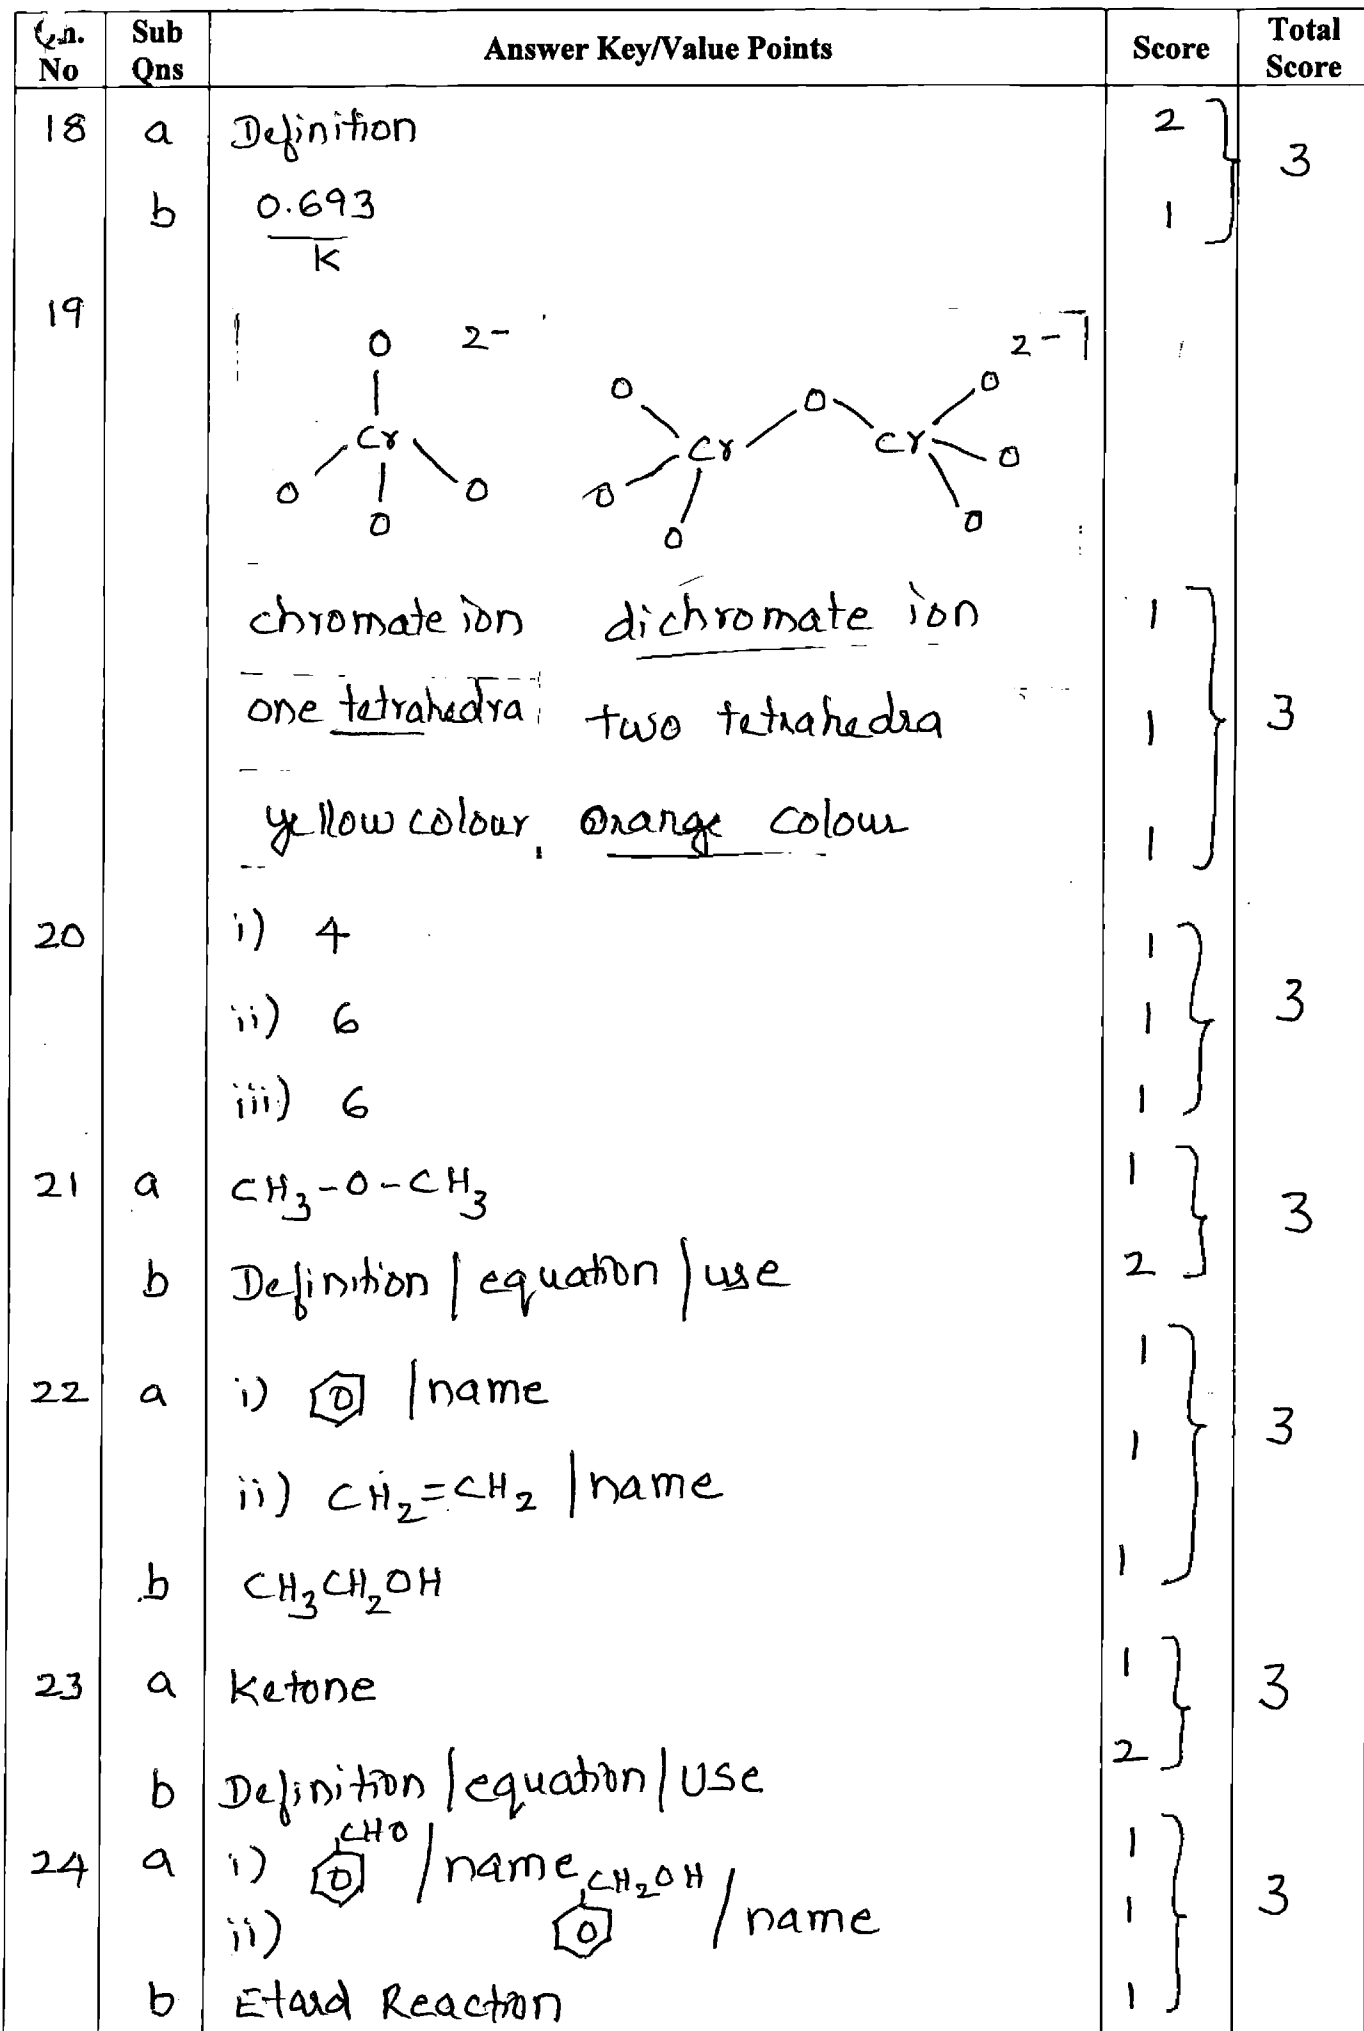 Qn. No Sub Qns Answer Key/Value Points Score Total Score
18 a Definition 2 3
b 0.693 / K 1
19
O 2- 2-
O O O
Cr Cr Cr O
O O O O
O O O
chromate ion dichromate ion 1
one tetrahedra two tetrahedra 1 3
yellow colour, Orange colour 1
20 i) 4 1
ii) 6 1 3
iii) 6 1
21 a CH3-O-CH3 1 3
b Definition / equation / use 2
22 a i) /name 1 3
ii) CH2=CH2 /name 1
b CH3CH2OH 1
23 a Ketone 1 3
b Definition /equation/ use 2
24 a i) CHO /name 1 3
ii) CH2OH /name 1
b Etard Reaction 1